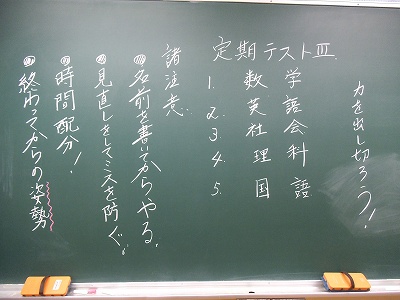 力を出し切ろう!
定期テストⅢ
1. 数学
2. 英語
3. 社会
4. 理科
5. 国語
諸注意
名前を書いてからやる。
見直しをしてミスを防ぐ。
時間配分!
終わってからの姿勢